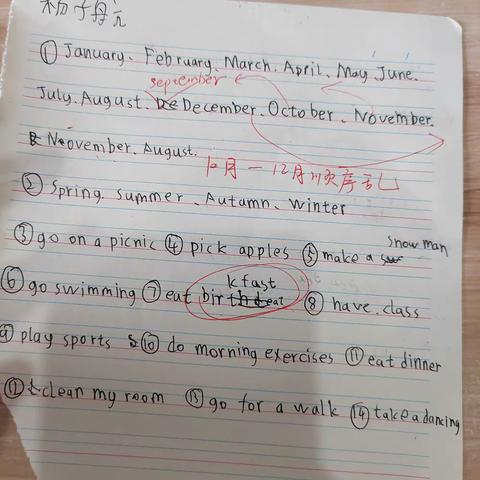 ① January. February. March. April. May. June.
September
July. August. December. October. November.
November. August.
10月一12月顺序乱
② Spring. summer. Autamn. winter
snow man
③ go on a picnic ④ pick apples ⑤ make a
kfast
⑥ go swimming ⑦ eat birthdeat ⑧ have class
⑨ play sports ⑩ do morning exercises ⑪ eat dinner
⑫ clean my room ⑬ go for a walk ⑭ take a dancing